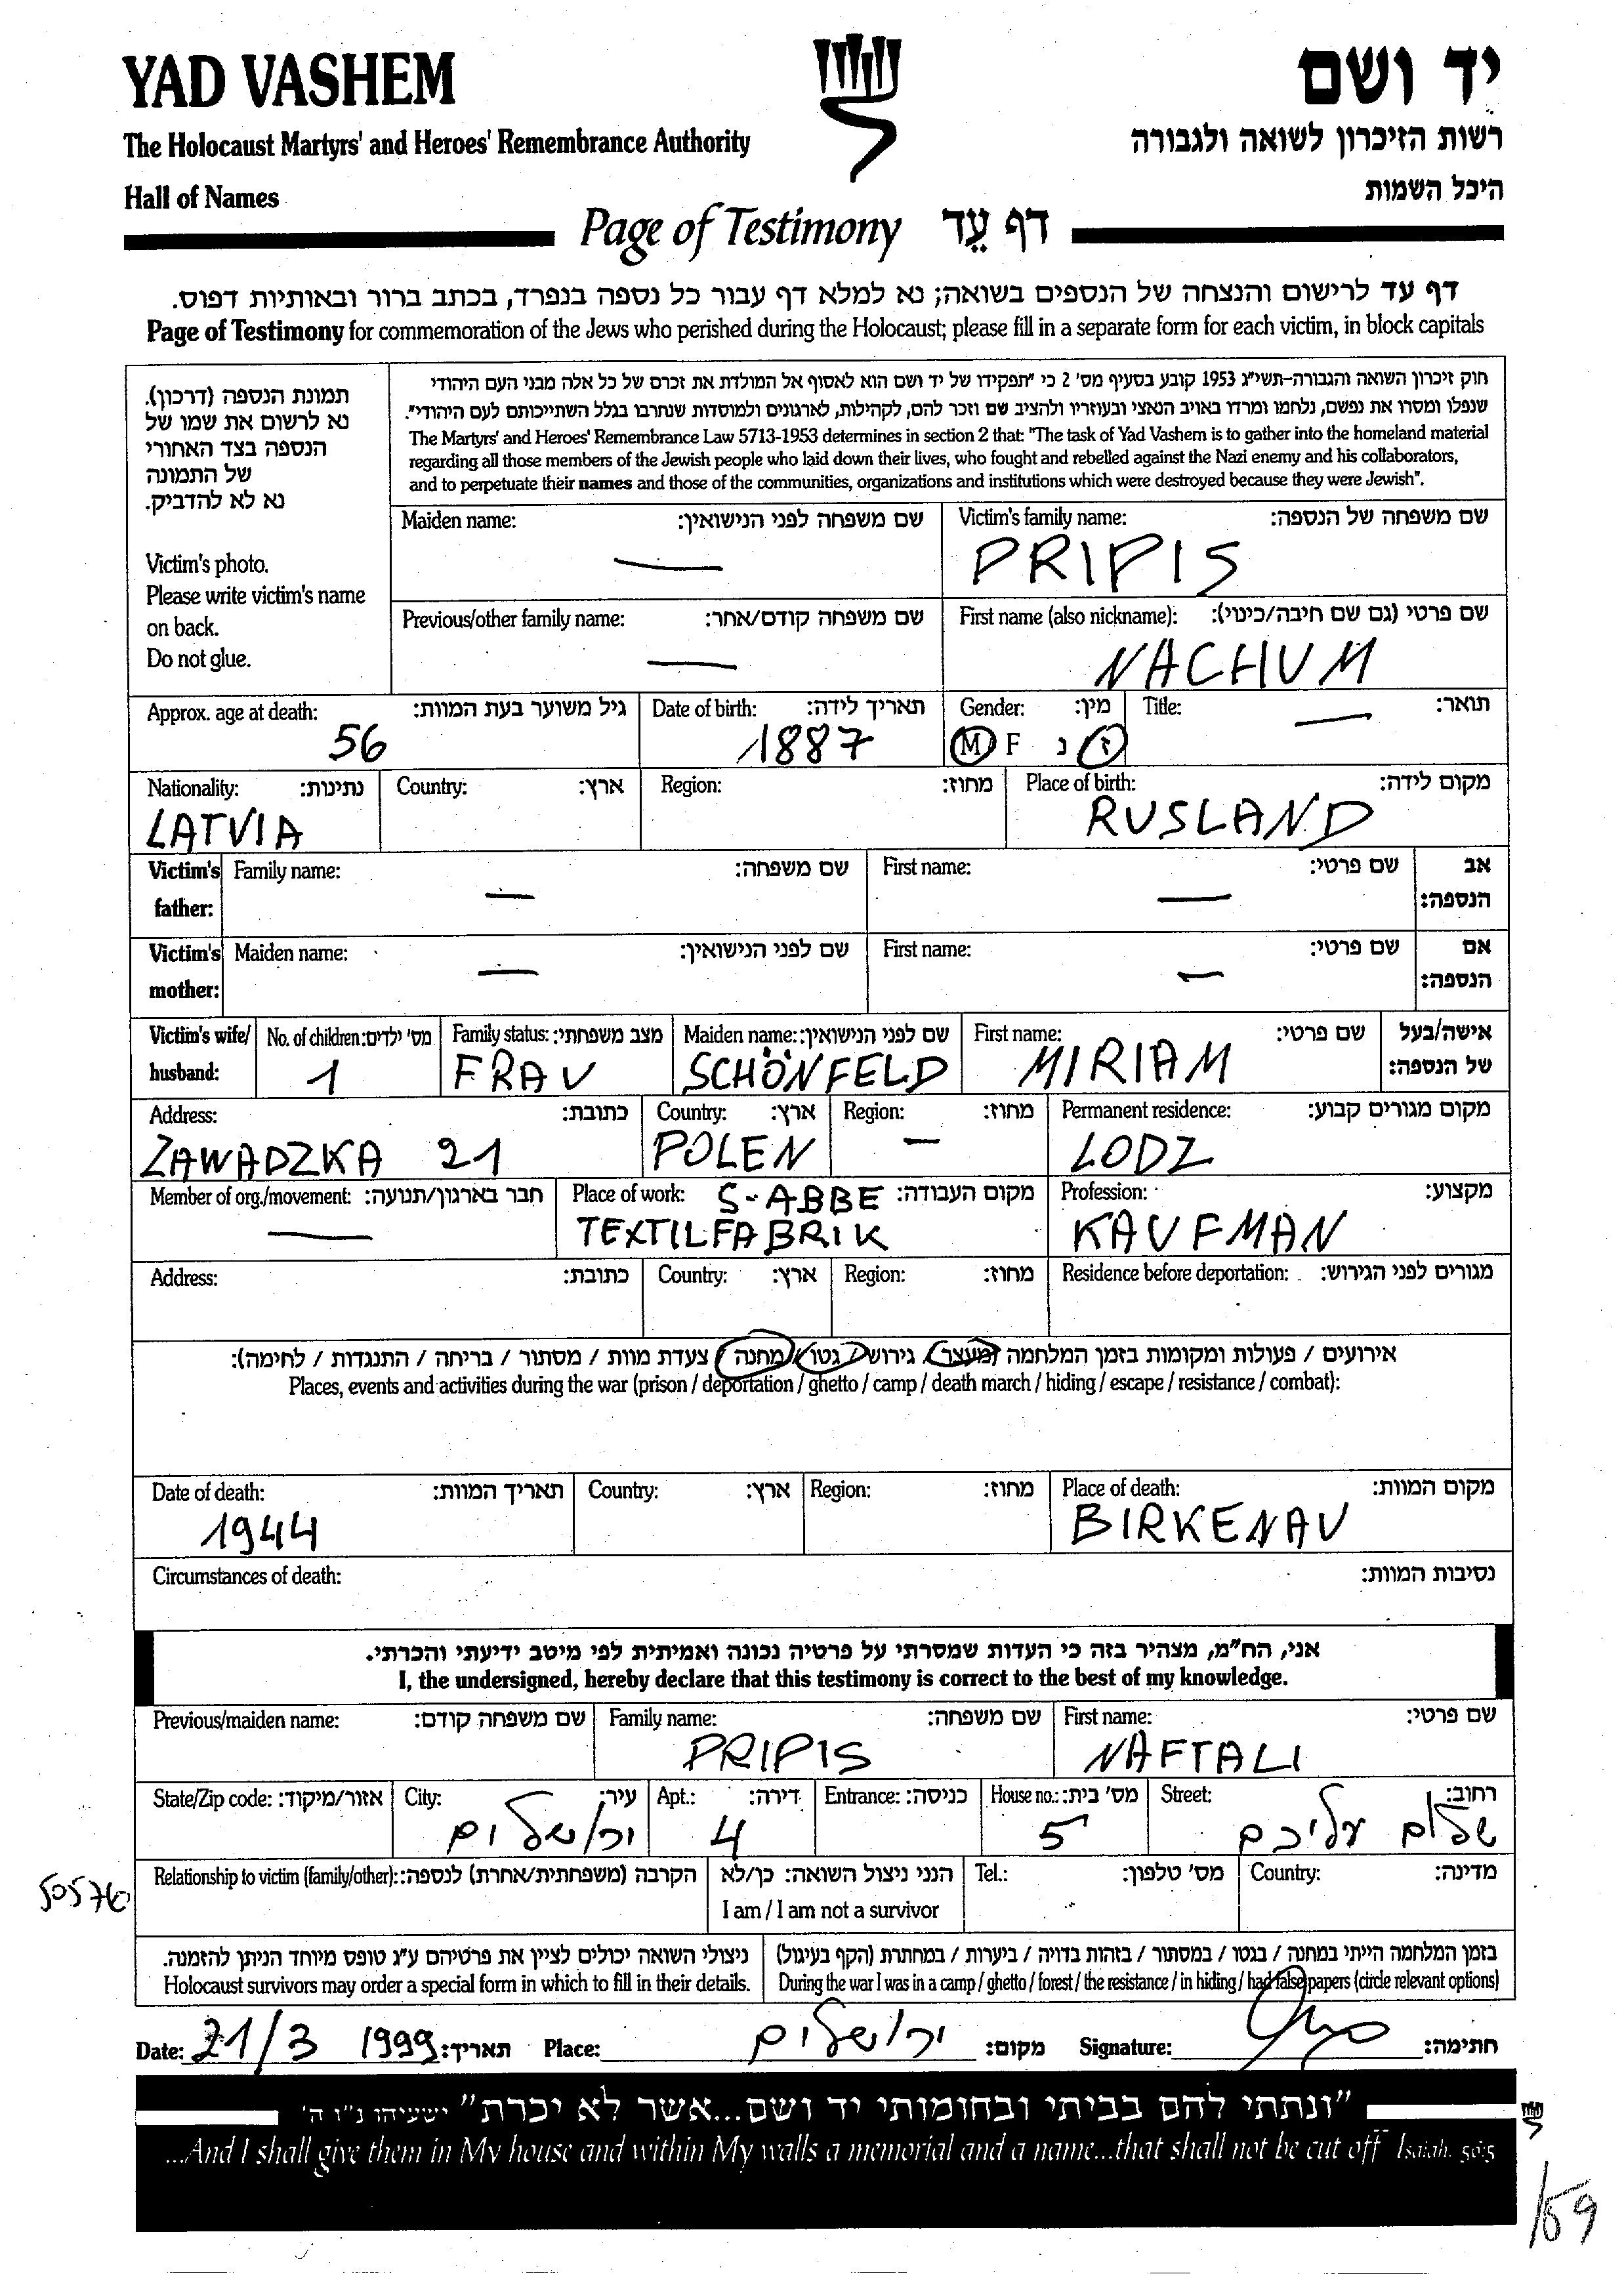 YAD VASHEM
יד ושם
The Holocaust Martyrs' and Heroes' Remembrance Authority
רשות הזיכרון לשואה ולגבורה
Hall of Names
היכל השמות
Page of Testimony דף עֵד
דף עד לרישום והנצחה של הנספים בשואה; נא למלא דף עבור כל נספה בנפרד, בכתב ברור ובאותיות דפוס.
Page of Testimony for commemoration of the Jews who perished during the Holocaust; please fill in a separate form for each victim, in block capitals
תמונת הנספה (דרכון).
נא לרשום את שמו של
הנספה בצד האחורי
של התמונה
נא לא להדביק.
Victim's photo.
Please write victim's name
on back.
Do not glue.
חוק זיכרון השואה והגבורה-תשי"ג 1953 קובע בסעיף מס' 2 כי "תפקידו של יד ושם הוא לאסוף אל המולדת את זכרם של כל אלה מבני העם היהודי
שנפלו ומסרו את נפשם, נלחמו ומרדו באויב הנאצי ובעוזריו ולהציב שם וזכר להם, לקהילות, לארגונים ולמוסדות שנחרבו בגלל השתייכותם לעם היהודי".
The Martyrs' and Heroes' Remembrance Law 5713-1953 determines in section 2 that: "The task of Yad Vashem is to gather into the homeland material
regarding all those members of the Jewish people who laid down their lives, who fought and rebelled against the Nazi enemy and his collaborators,
and to perpetuate their names and those of the communities, organizations and institutions which were destroyed because they were Jewish".
Maiden name: שם משפחה לפני הנישואין: Victim's family name: שם משפחה של הנספה:
— PRIPIS
Previous/other family name: שם משפחה קודם/אחר: First name (also nickname): שם פרטי (גם שם חיבה/כינוי):
— NACHUM
Approx. age at death: גיל משוער בעת המוות: Date of birth: תאריך לידה: Gender: מין: Title: תואר:
56 1887 M F נ ז —
Nationality: נתינות: Country: ארץ: Region: מחוז: Place of birth: מקום לידה:
LATVIA RUSLAND
Victim's father: Family name: שם משפחה: First name: שם פרטי: אב הנספה:
— —
Victim's mother: Maiden name: שם לפני הנישואין: First name: שם פרטי: אם הנספה:
— —
Victim's wife/ husband: No. of children: מס' ילדים: Family status: מצב משפחתי: Maiden name: שם לפני הנישואין: First name: שם פרטי: אישה/בעל של הנספה:
1 FRAU SCHÖNFELD MIRIAM
Address: כתובת: Country: ארץ: Region: מחוז: Permanent residence: מקום מגורים קבוע:
ZAWADZKA 21 POLEN — LODZ
Member of org./movement: חבר בארגון/תנועה: Place of work: מקום העבודה: Profession: מקצוע:
— S-ABBE TEXTILFABRIK KAUFMAN
Address: כתובת: Country: ארץ: Region: מחוז: Residence before deportation: מגורים לפני הגירוש:
אירועים / פעולות ומקומות בזמן המלחמה (מעצר / גירוש / גטו / מחנה / צעדת מוות / מסתור / בריחה / התנגדות / לחימה):
Places, events and activities during the war (prison / deportation / ghetto / camp / death march / hiding / escape / resistance / combat):
Date of death: תאריך המוות: Country: ארץ: Region: מחוז: Place of death: מקום המוות:
1944 BIRKENAU
Circumstances of death: נסיבות המוות:
אני, הח"מ, מצהיר בזה כי העדות שמסרתי על פרטיה נכונה ואמיתית לפי מיטב ידיעתי והכרתי.
I, the undersigned, hereby declare that this testimony is correct to the best of my knowledge.
Previous/maiden name: שם משפחה קודם: Family name: שם משפחה: First name: שם פרטי:
PRIPIS NAFTALI
State/Zip code: אזור/מיקוד: City: עיר: Apt.: דירה: Entrance: כניסה: House no.: מס' בית: Street: רחוב:
ירושלים 4 5 שלום עליכם
50576
Relationship to victim (family/other): הקרבה (משפחתית/אחרת) לנספה: הנני ניצול השואה: כן/לא Tel.: מס' טלפון: Country: מדינה:
I am / I am not a survivor
ניצולי השואה יכולים לציין את פרטיהם ע"ג טופס מיוחד הניתן להזמנה. בזמן המלחמה הייתי במחנה / בגטו / במסתור / בזהות בדויה / ביערות / במחתרת (הקף בעיגול)
Holocaust survivors may order a special form in which to fill in their details. During the war I was in a camp / ghetto / forest / the resistance / in hiding / had false papers (circle relevant options)
Date: 21/3 1999 תאריך: Place: ירושלים מקום: Signature: חתימה:
"ונתתי להם בביתי ובחומותי יד ושם...אשר לא יכרת" ישעיהו נ"ו ה'
...And I shall give them in My house and within My walls a memorial and a name...that shall not be cut off Isaiah. 56:5
/59